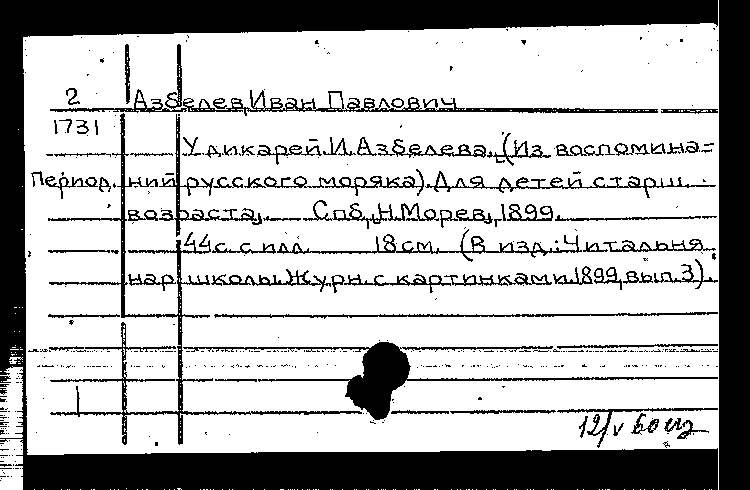 2 Азбелев, Иван Павлович
1731
У дикарей. И. Азбелева. (Из воспомина=
Период. ний русского моряка). Для детей старш.
возраста. Спб, Н. Морев, 1899.
44 с. с илл. 18 см. (В изд.: Читальня
нар. школы. Журн. с картинками. 1899, вып. 3).
12/V 60